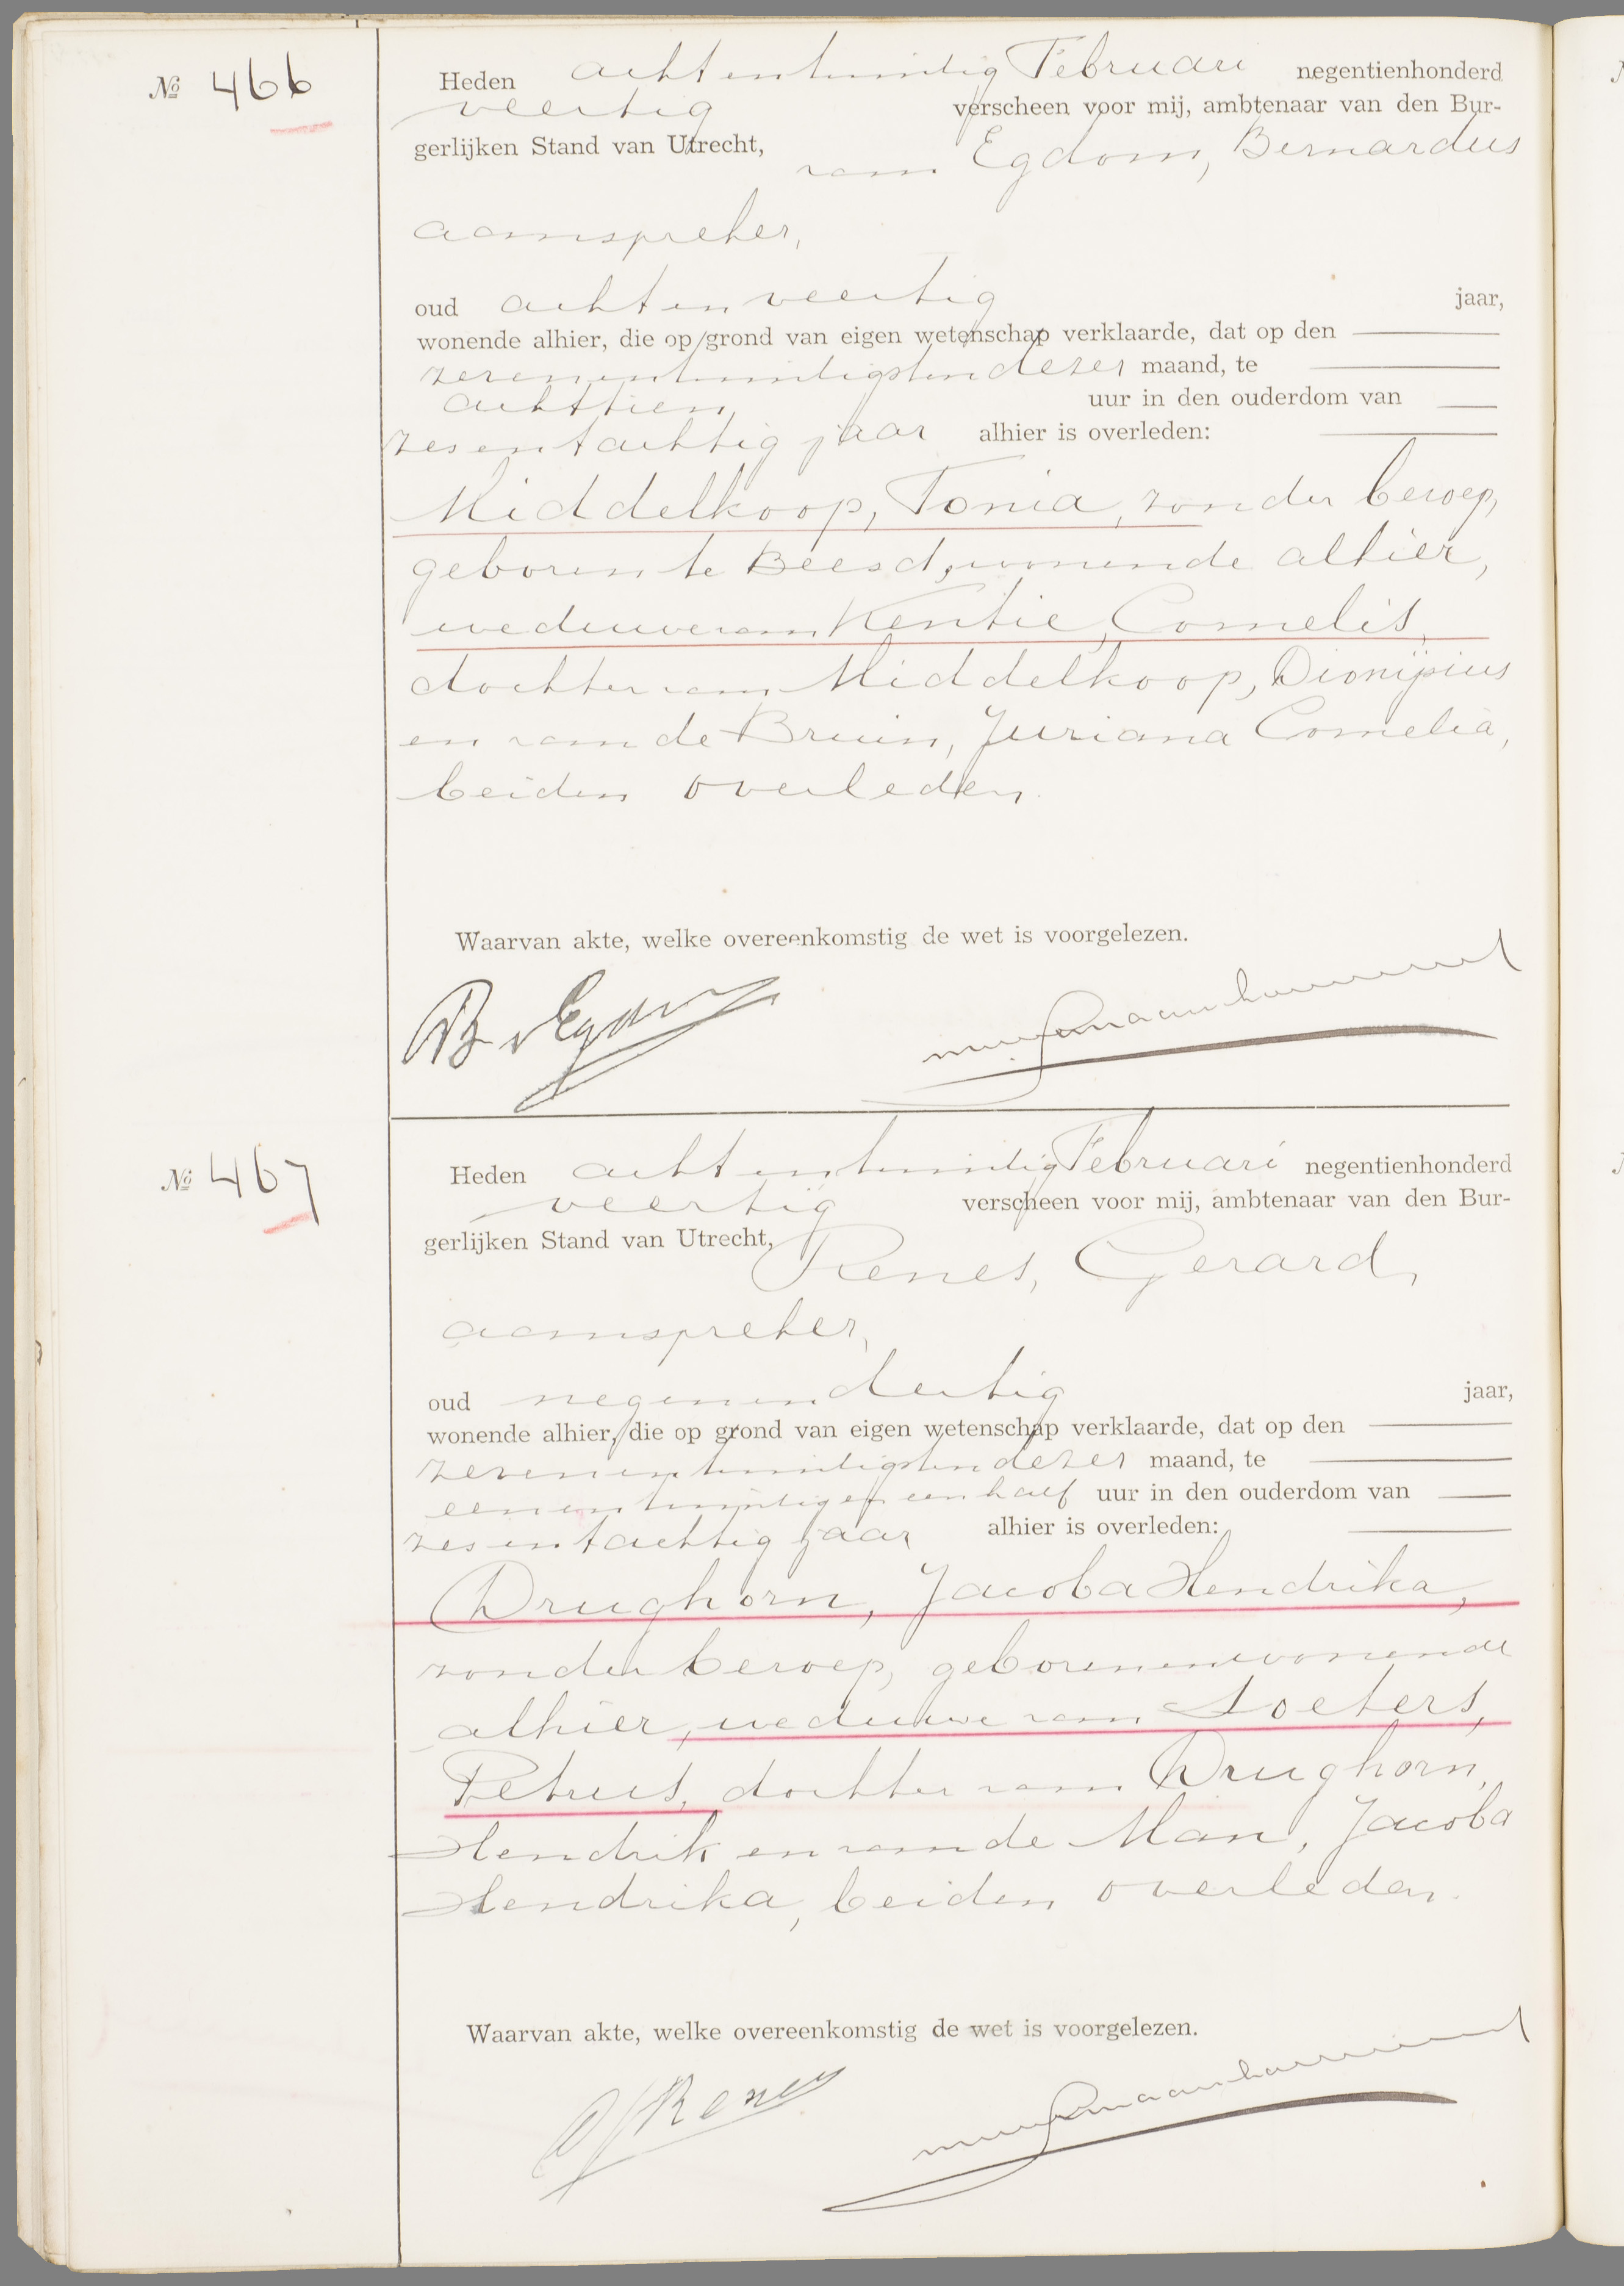 № 466
Heden achtentwintig Februari negentienhonderd
veertig verscheen voor mij, ambtenaar van den Bur-
gerlijken Stand van Utrecht, van Egdom, Bernardus
aanspreker,
oud achtenveertig jaar,
wonende alhier, die op grond van eigen wetenschap verklaarde, dat op den
zevenentwintigsten dezer maand, te
achttien uur in den ouderdom van
zesentachtig jaar alhier is overleden:
Middelkoop, Tonia, zonder beroep,
geboren te Beesd, wonende alhier,
weduwe van Kentie, Cornelis,
dochter van Middelkoop, Dionijsius
en van de Bruin, Juriana Cornelia,
beiden overleden.
Waarvan akte, welke overeenkomstig de wet is voorgelezen.
B v Egdom
№ 467
Heden achtentwintig Februari negentienhonderd
veertig verscheen voor mij, ambtenaar van den Bur-
gerlijken Stand van Utrecht, Renes, Gerard,
aanspreker,
oud negenendertig jaar,
wonende alhier, die op grond van eigen wetenschap verklaarde, dat op den
zevenentwintigsten dezer maand, te
eenentwintig en een half uur in den ouderdom van
zesentachtig jaar alhier is overleden:
Drughorn, Jacoba Hendrika,
zonder beroep, geboren en wonende
alhier, weduwe van Soeters,
Petrus, dochter van Drughorn,
Hendrik en van de Man, Jacoba
Hendrika, beiden overleden.
Waarvan akte, welke overeenkomstig de wet is voorgelezen.
G Renes